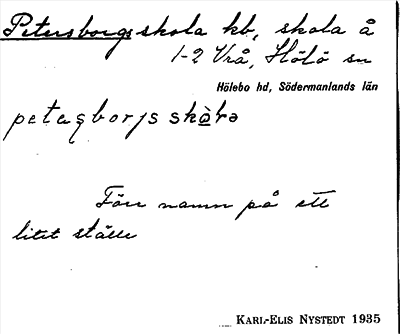 Petersborgs skola kb, skola å
1-2 Vrå, Hölö sn
Hölebo hd, Södermanlands län
petaʂborjs skò̱la
Förr namn på ett
litet ställe
KARL-ELIS NYSTEDT 1935